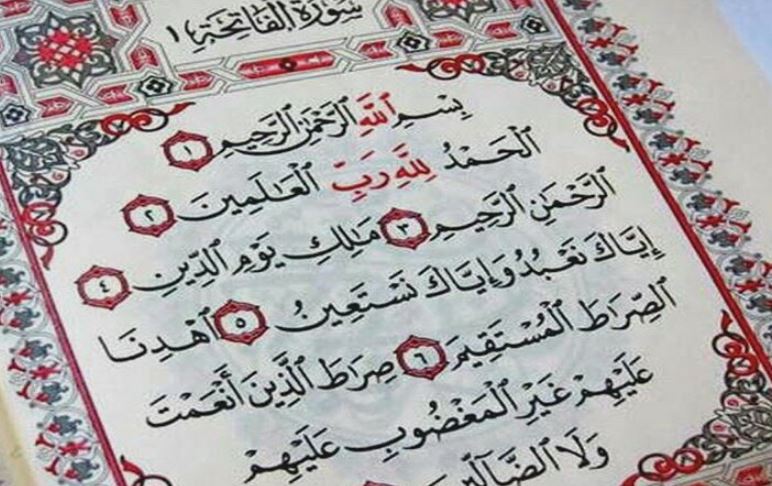 سُورَةُ الفَاتِحَةِ ١
بِسْمِ ٱللَّهِ ٱلرَّحْمَٰنِ ٱلرَّحِيمِ ١
ٱلْحَمْدُ لِلَّهِ رَبِّ ٱلْعَالَمِينَ ٢
ٱلرَّحْمَٰنِ ٱلرَّحِيمِ ٣ مَالِكِ يَوْمِ ٱلدِّينِ ٤
إِيَّاكَ نَعْبُدُ وَإِيَّاكَ نَسْتَعِينُ ٥ ٱهْدِنَا
ٱلصِّرَاطَ ٱلْمُسْتَقِيمَ ٦ صِرَاطَ ٱلَّذِينَ أَنْعَمْتَ
عَلَيْهِمْ غَيْرِ ٱلْمَغْضُوبِ عَلَيْهِمْ
وَلَا ٱلضَّآلِّينَ